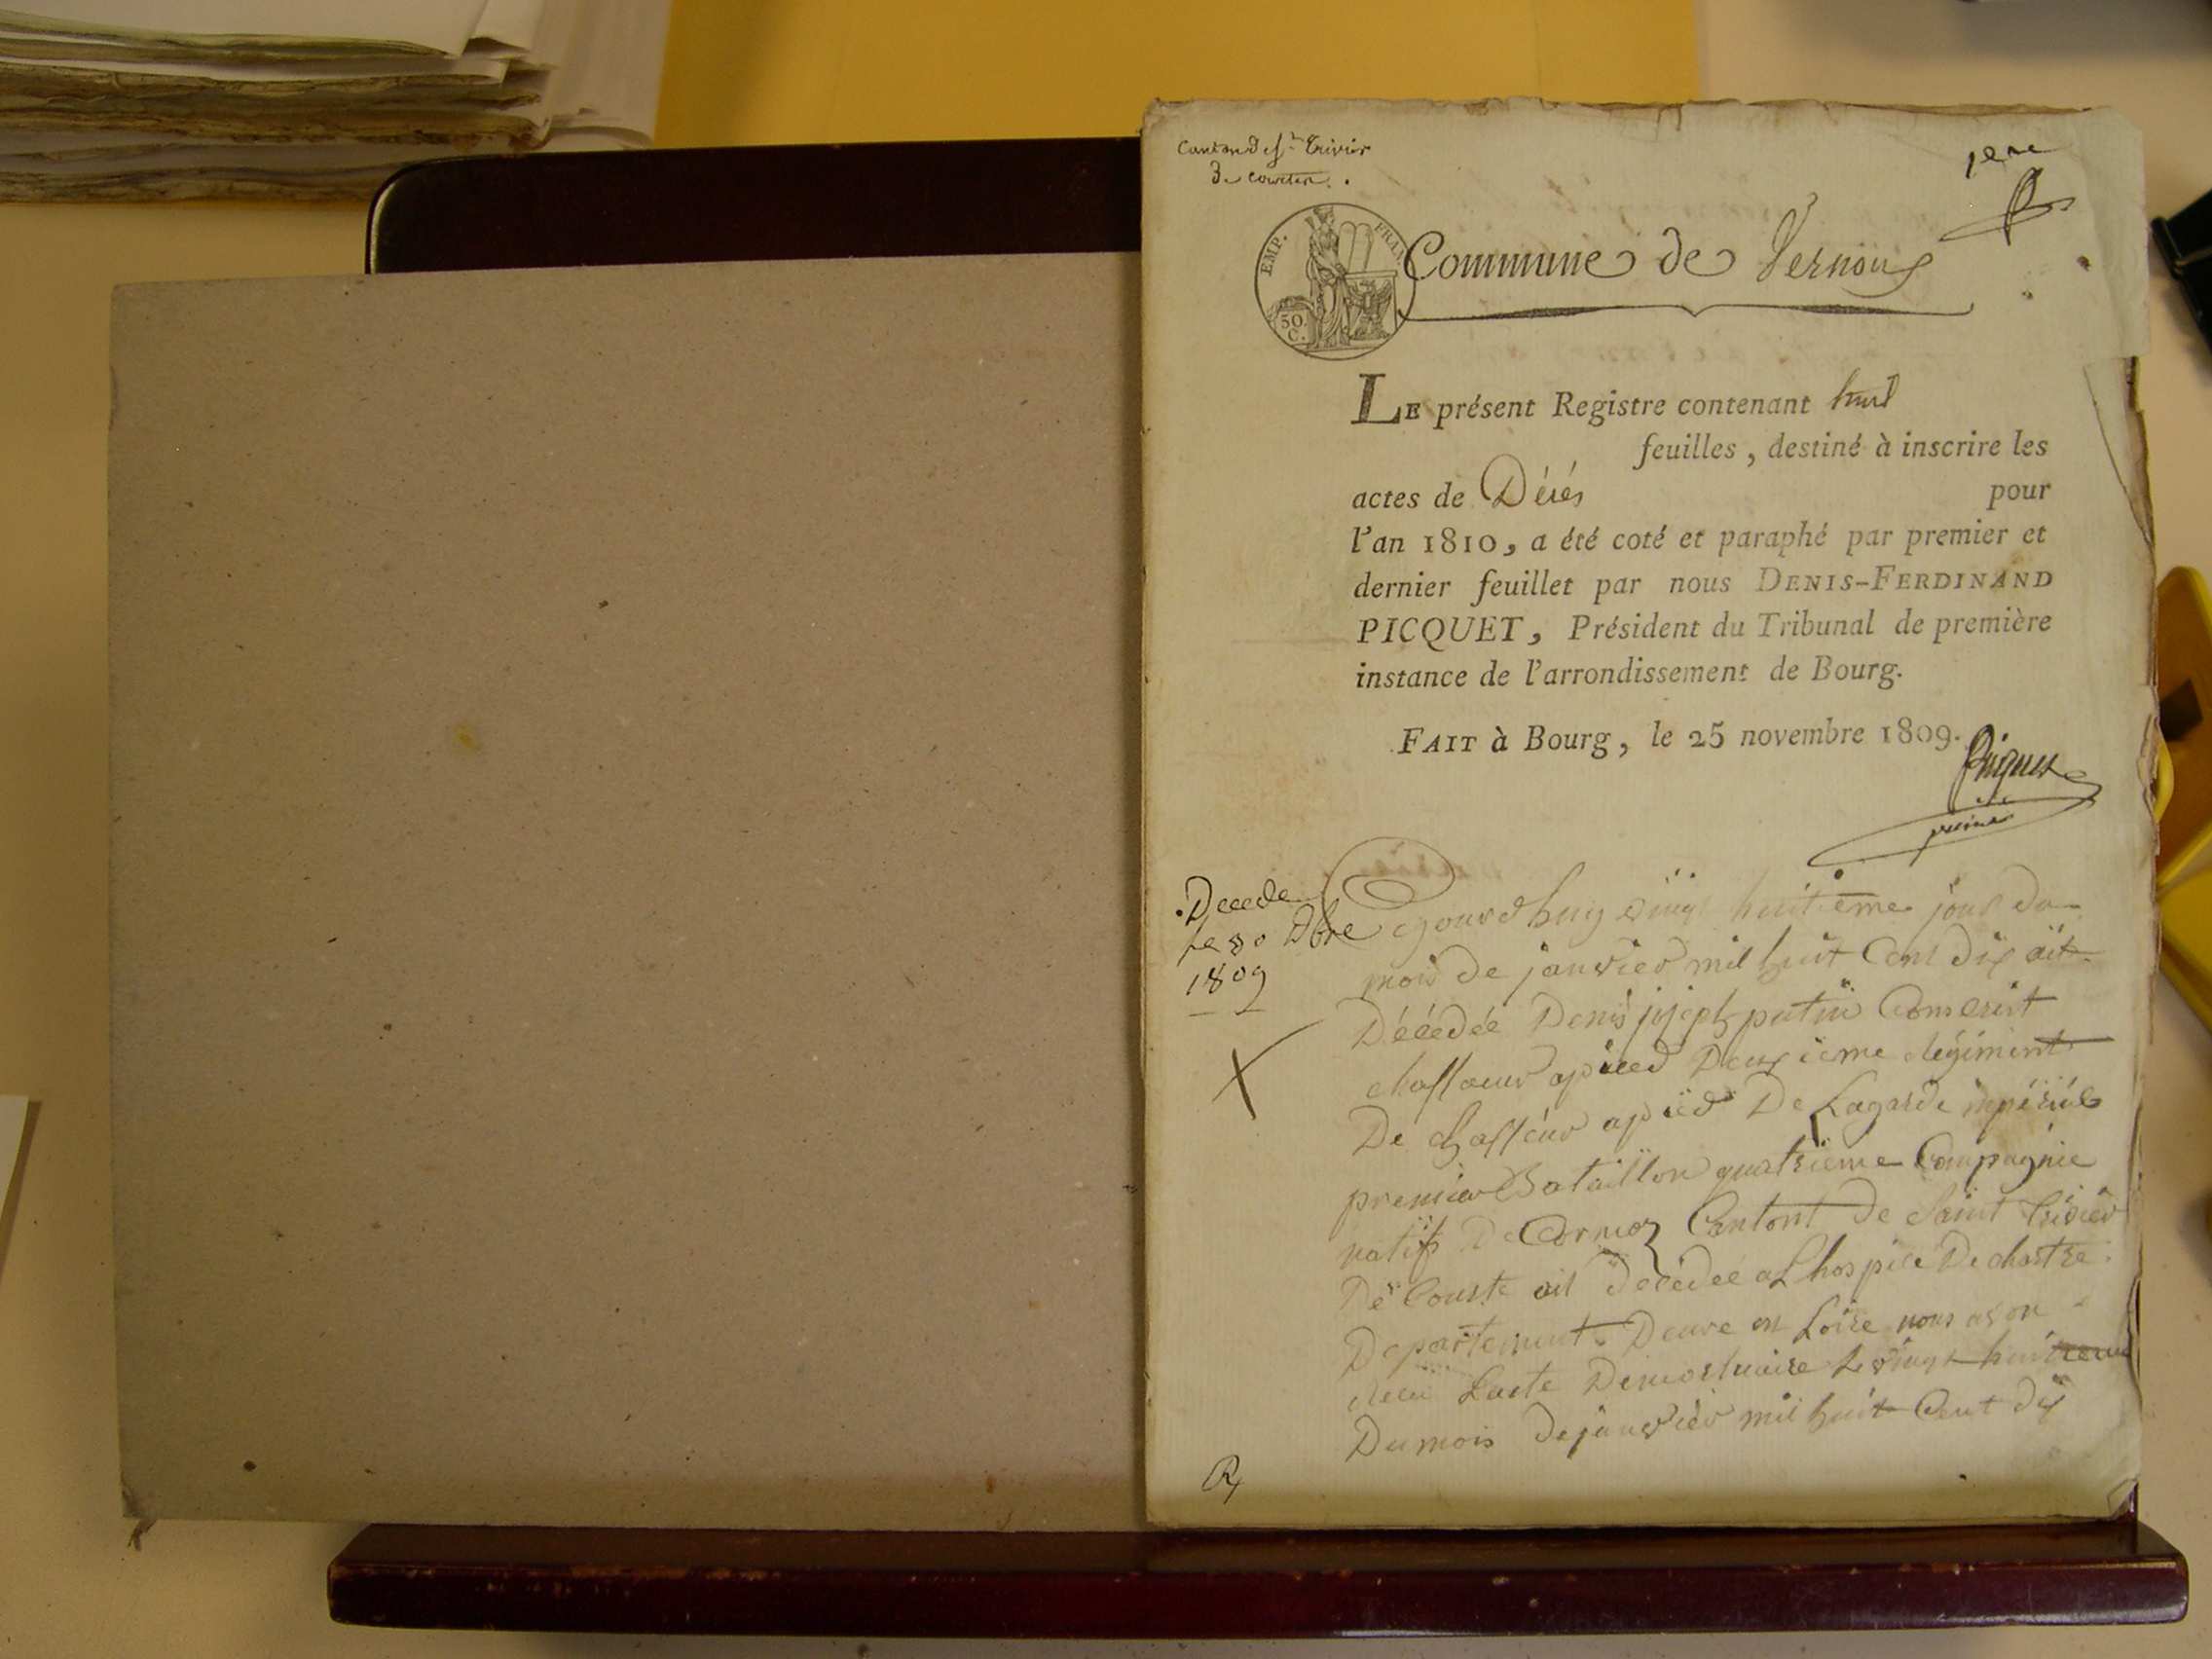 Canton de St Trivier
de courtes.
1ere
EMP. FRAN.
50. C.
Commune de Vernoux
LE présent Registre contenant huit
feuilles, destiné à inscrire les
actes de Décés pour
l'an 1810, a été coté et paraphé par premier et
dernier feuillet par nous DENIS-FERDINAND
PICQUET, Président du Tribunal de première
instance de l'arrondissement de Bourg.
FAIT à Bourg, le 25 novembre 1809.
Picquet
Decede
le 30 Xbre
1809
jourdhuy vingt huitieme jour du
mois de janvier mil huit Cent dix ait
Décédée Denis joseph putin Conscrit
chasseur apied Deuxieme regiment
De chasseur apied De Lagarde impérial
premier Bataillon quatrieme Compagnie
natif De Cormoz Cantont de Saint trivier
De Courte ait décédée a Lhospice De chartre
Departement Deure en Loire nous avon
recu Lacte Demortuaire Le vingt huitieme
Du mois de janvier mil huit Cent dix